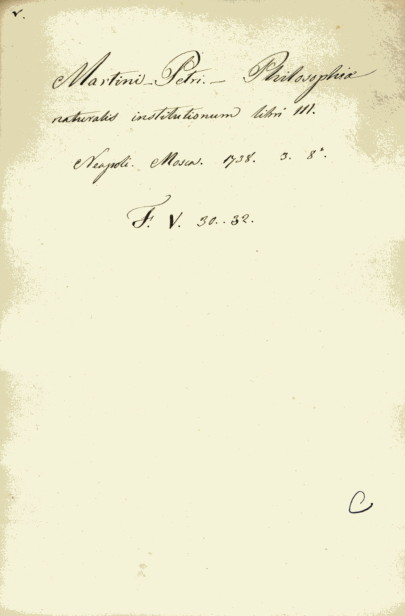 v.
Martini Petri. — Philosophiæ
naturalis institutionum libri III.
Neapoli. Mosca. 1738. 3. 8°.
F. V. 30..32.
C